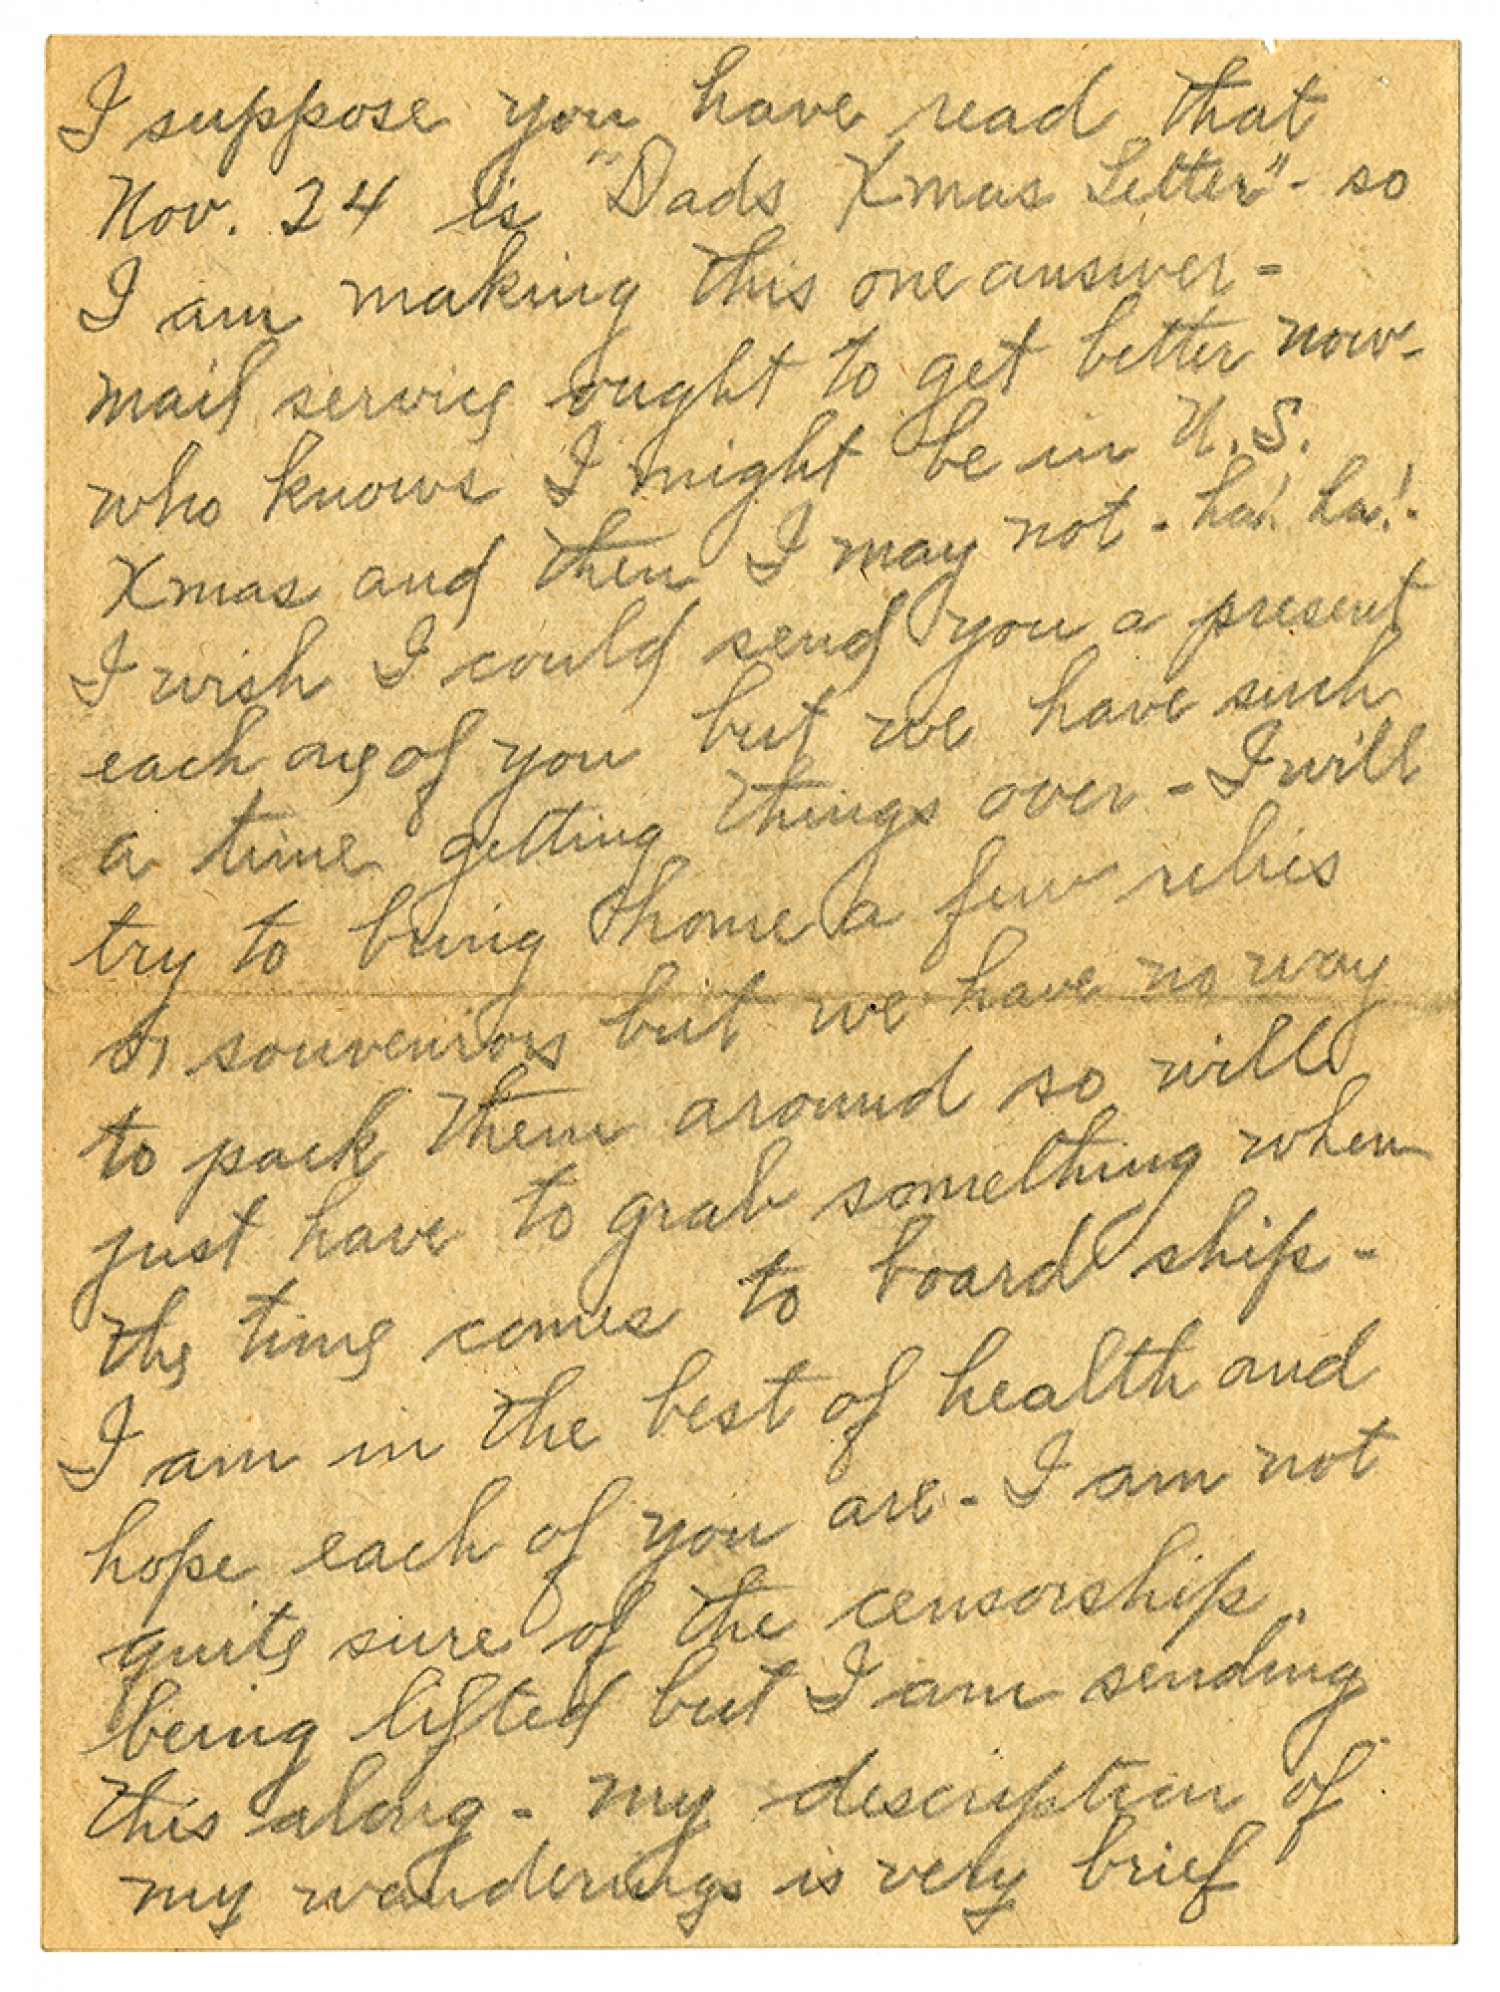 I suppose you have read that
Nov. 24 is "Dads Xmas Letter" - so
I am making this one answer -
mail service ought to get better now -
who knows I might be in U.S.
Xmas and then I may not - ha! ha! -
I wish I could send you a present
each one of you but we have such
a time getting things over - I will
try to bring home a few relics
or souveniors but we have no way
to pack them around so will
just have to grab something when
the time comes to board ship -
I am in the best of health and
hope each of you are - I am not
quite sure of the censorship
being lifted but I am sending
this along - my description of
my wanderings is very brief